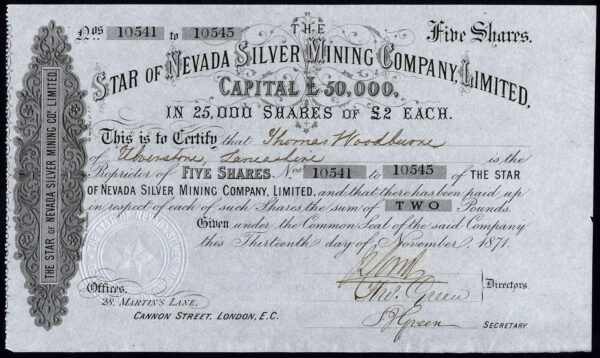 Nos 10541 to 10545
THE
Five Shares.
STAR OF NEVADA SILVER MINING COMPANY, LIMITED.
CAPITAL £50,000,
IN 25,000 SHARES OF £2 EACH.
This is to Certify that Thomas Woodburne
of Ulverstone, Lancashire is the
Proprietor of FIVE SHARES. Nos 10541 to 10545 of THE STAR
OF NEVADA SILVER MINING COMPANY, LIMITED, and that there has been paid up
in respect of each of such Shares the sum of TWO Pounds.
Given under the Common Seal of the said Company
this Thirteenth day of November, 1871.
Thos. Green
Directors.
Green
SECRETARY
Offices,
28, MARTIN'S LANE,
CANNON STREET, LONDON, E.C.
THE STAR OF NEVADA SILVER MINING COY. LIMITED.
THE STAR OF NEVADA